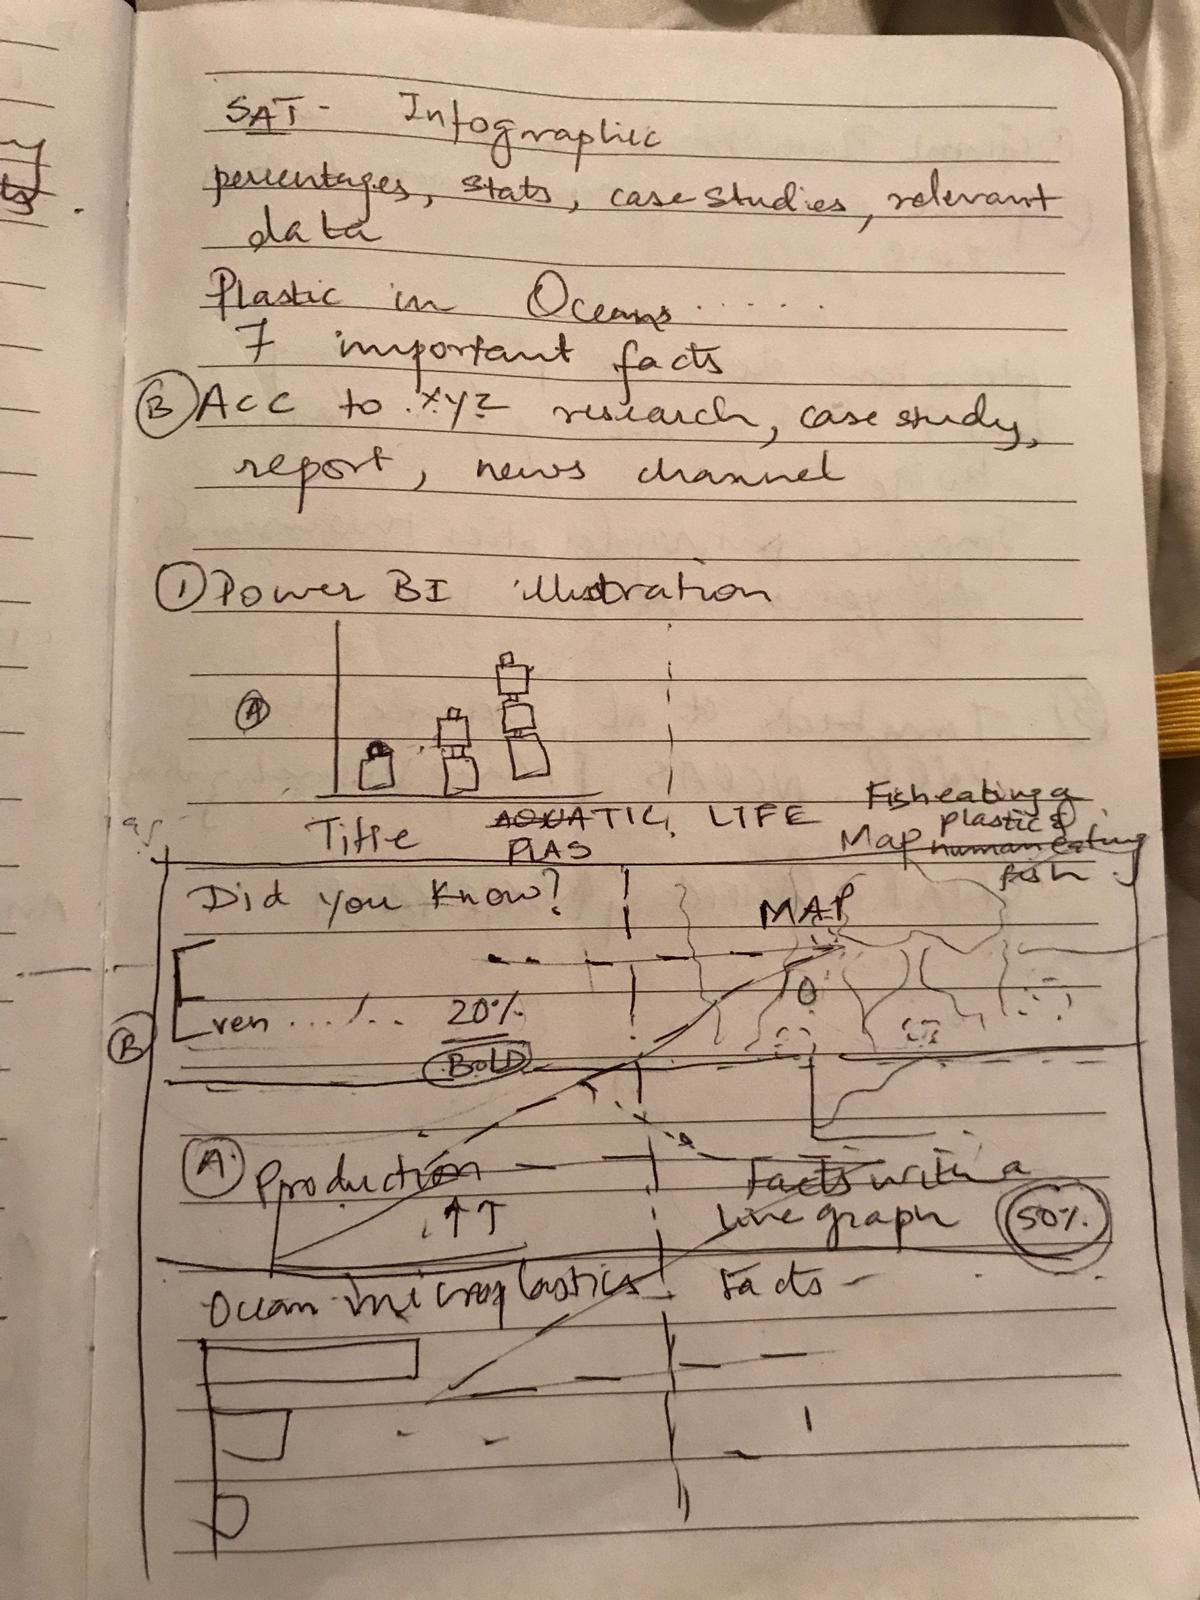 SAT - Infographic
percentages, stats, case studies, relevant
data
Plastic in Oceans......
7 important facts
B Acc to xyz research, case study,
report, news channel
1 Power BI illustration
A
Fish eating a
Title AQUATIC LIFE Map plastic &
PLAS human eating
fish
Did you know?
MAP
20%
B
BOLD
A Production Facts with a
↑↑ line graph 50%
Ocean microplastics Facts -